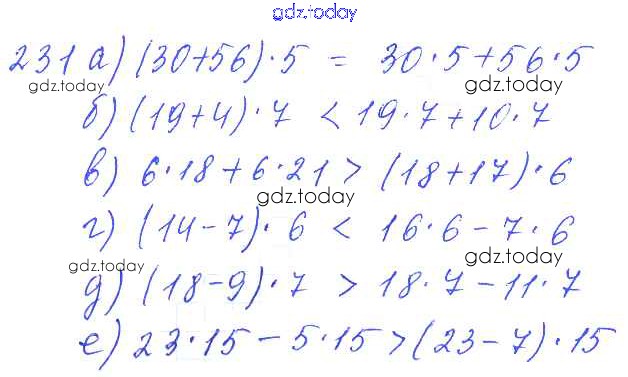 gdz.today
231 а) (30+56)·5 = 30·5+56·5
gdz.today
gdz.today
б) (19+4)·7 < 19·7+10·7
в) 6·18+6·21 > (18+17)·6
gdz.today
г) (14-7)·6 < 16·6-7·6
gdz.today
gdz.today
д) (18-9)·7 > 18·7-11·7
е) 23·15-5·15 > (23-7)·15
gdz.today